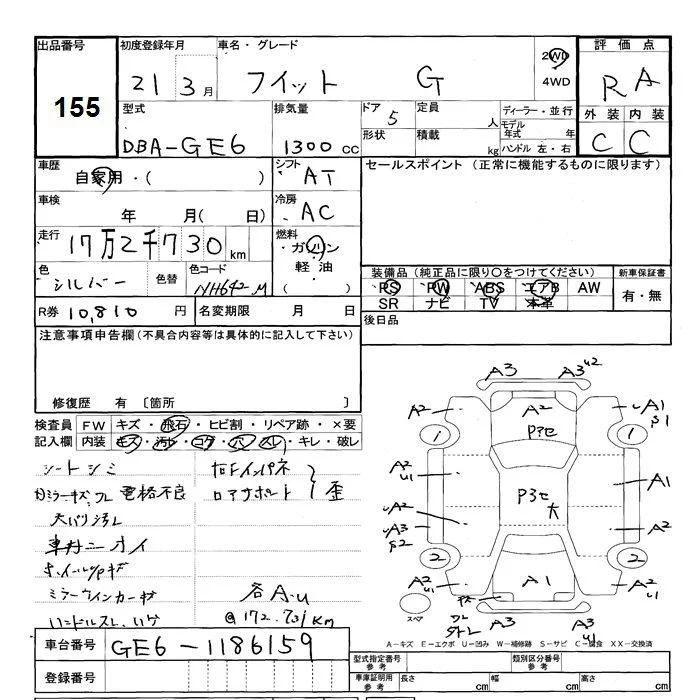 出品番号
155
初度登録年月
21 3月
車名・グレード
フィット G
2WD
4WD
評価点
RA
型式
DBA-GE6
排気量
1300 cc
ドア
5
形状
定員
人
積載
kg
ディーラー・並行
モデル
年式 年
ハンドル 左・右
外装 内装
C C
車歴
自家用・( )
シフト
AT
セールスポイント (正常に機能するものに限ります)
車検
年 月( 日)
冷房
AC
走行
17万2千730km
燃料
・ガソリン
軽油
・( )
色
シルバー
色替
色コード
NH642M
装備品 (純正品に限り○をつけてください)
新車保証書
PS PW ABS エアB AW
SR ナビ TV 本革
有・無
R券 10,810 円
名変期限 月 日
後日品
注意事項申告欄(不具合内容等は具体的に記入して下さい)
修復歴 有 〔箇所 〕
検査員
記入欄
FW キズ・飛石・ヒビ割・リペア跡・×要
内装 キズ・汚れ・コゲ・穴・スレ・キレ・破レ
シートシミ
右Fインパネ
ロアサポート 歪
電格不良
天バリ汚レ
車内ニオイ
ミラーウインカーキズ
ハンドルスレ
各AU
@172.731km
A3 A3 U2
A2 A2 A1 S1
1 1
P3セ
A2 U1
A1
UA2
UA3 S2
A2
2 2
A2 U1
A1
A2 U1
スペア
A3 A3 U1
A-キズ E-エクボ U-凹み W-補修跡 S-サビ C-腐食 XX-交換済
車台番号
GE6-1186159
登録番号
型式指定番号
参考
類別区分番号
参考
車庫証明用
参考
長さ cm
幅 cm
高さ cm